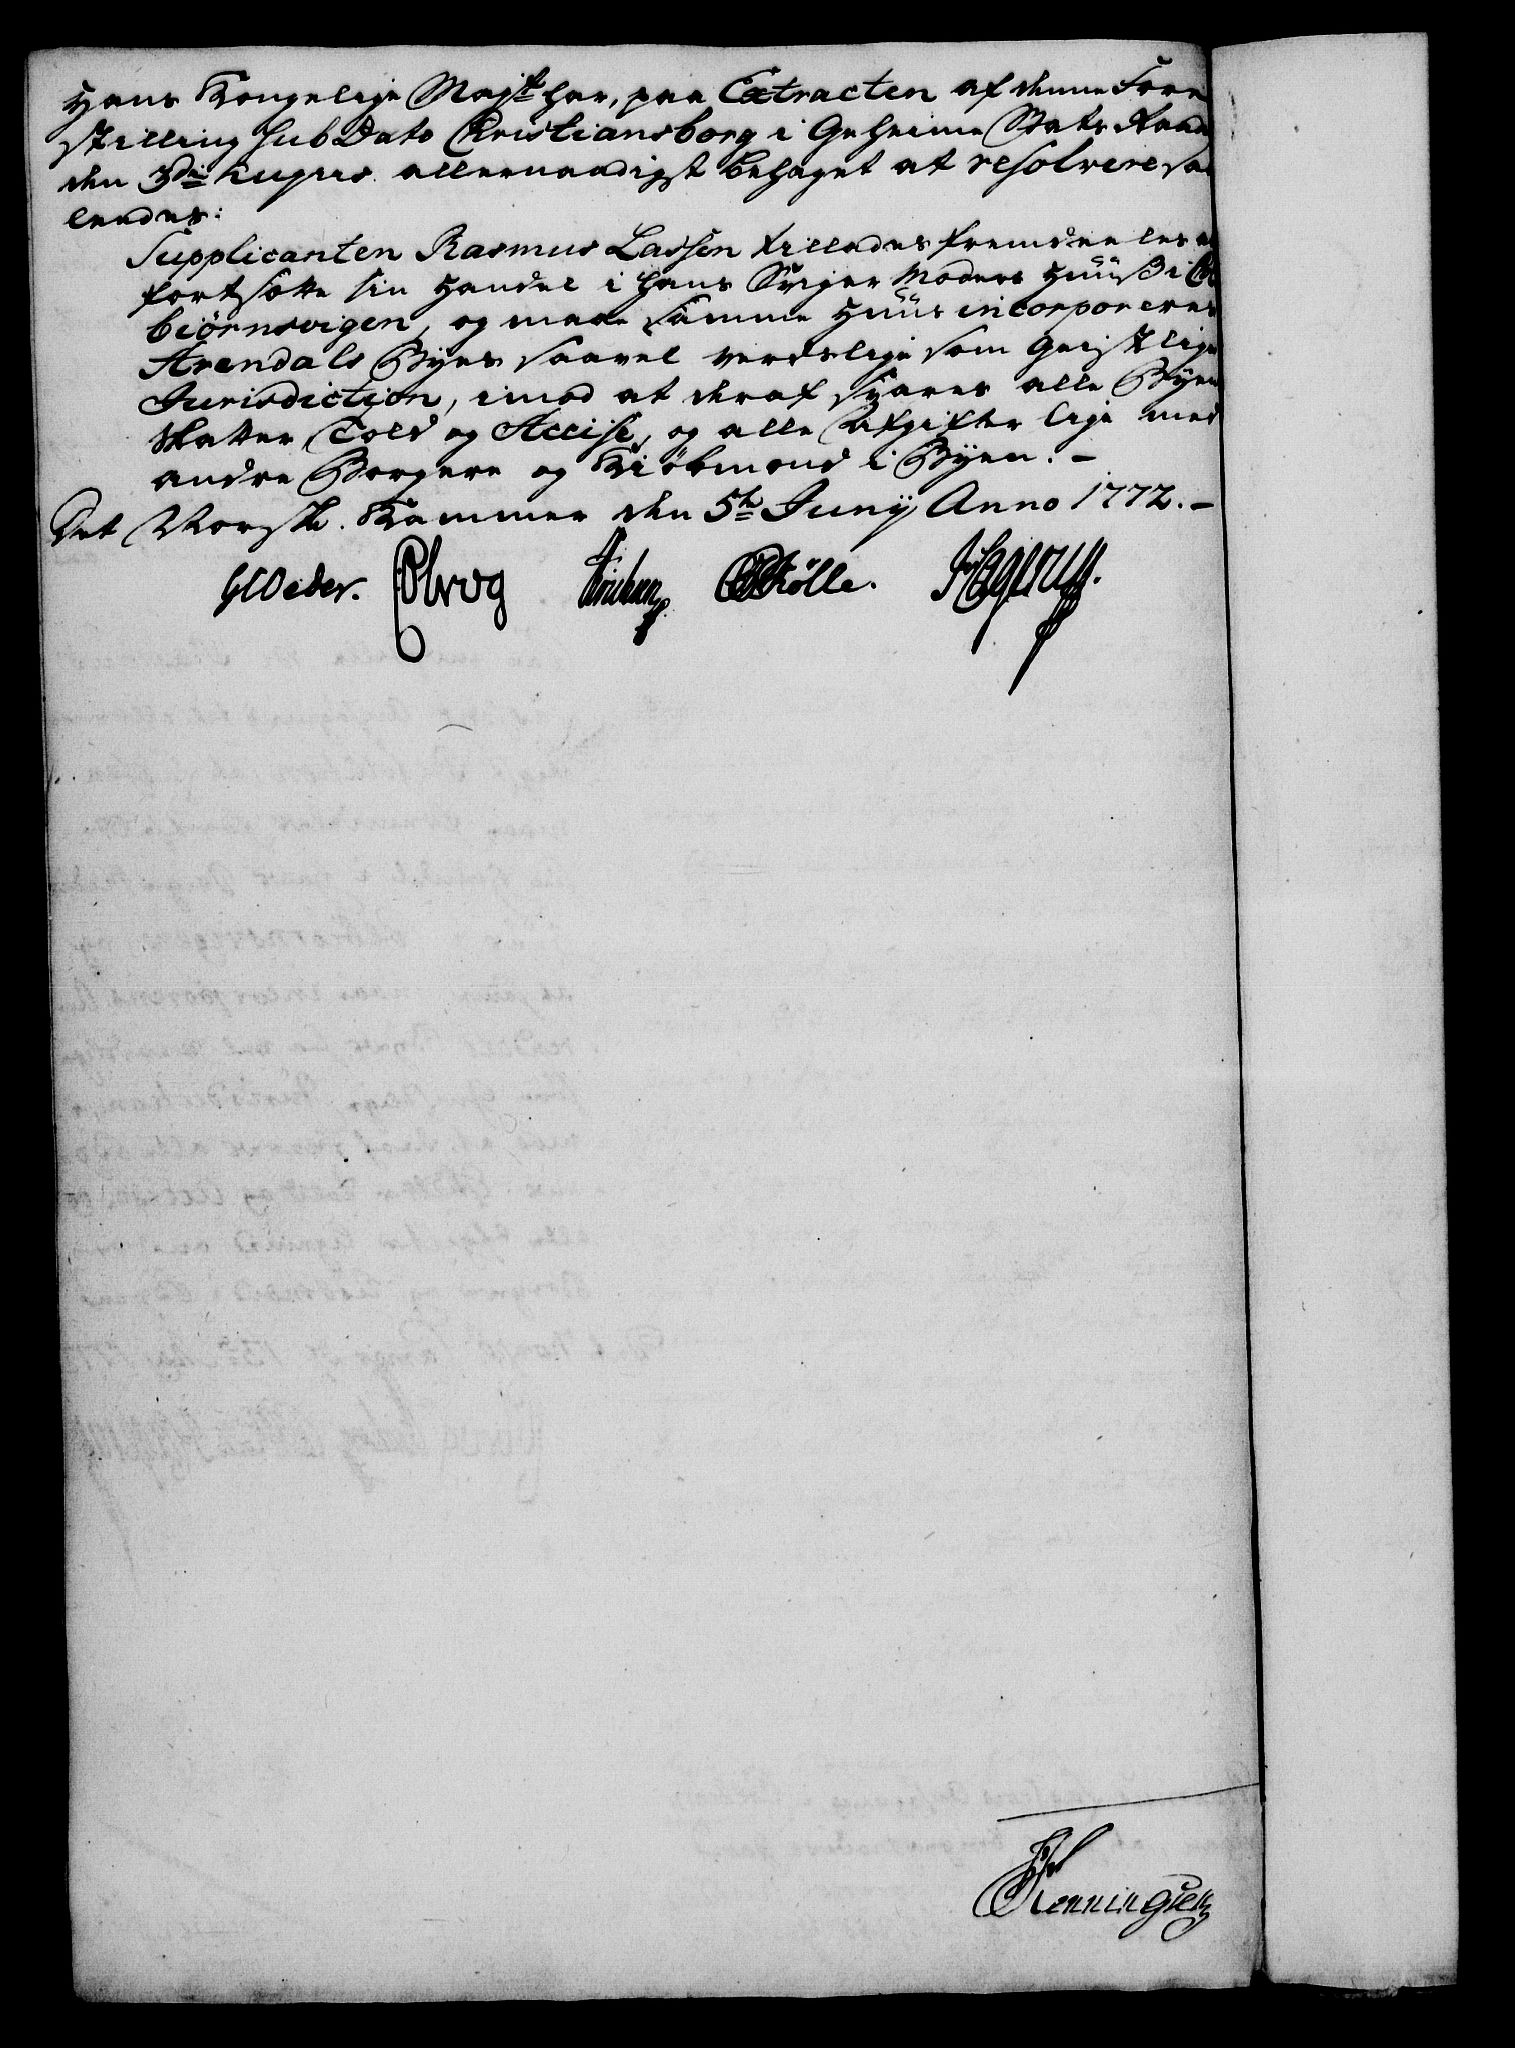 Hans Kongelige Majst: har, paa Extracten af denne Fore
stilling sub Dato Christiansborg i Geheime Stats Raad
den 3die hujus allernaadigst behaget at resolvere saa
ledes:
Supplicanten Rasmus Lassen tillades fremdeeles at
fortsætte sin Handel i hans Sviger Moders Huus i
biörnsvigen, og maae samme Huus incorporeres
Arendals Byes saavel verdslige som Geistlige
Jurisdiction, imod at deraf svares alle Byens
Skatter, Told og Accise, og alle Afgifter lige med
andre Borgere og Kiöbmænd i Byen. -
Det Norske Kammer den 5te Juny Anno 1772. -
Holrog Rölle. Hagerup.
Henningsen